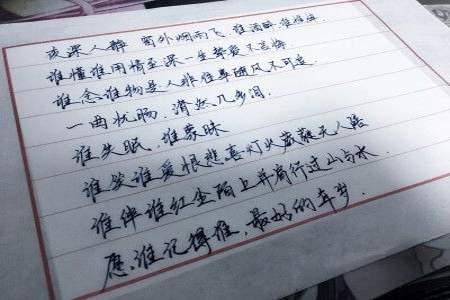 夜深人醉 窗外烟雨飞 谁清醉 谁憔悴
谁懂谁用情至深一生挚爱不言悔
谁念谁物是人非往事随风不可追
一曲忧肠,潸然几多泪.
谁失眠,谁寡味
谁笑谁爱恨悲喜灯火葳蕤无人陪
谁伴谁红尘陌上并肩行过山与水.
愿,谁记得谁,最好的年岁.